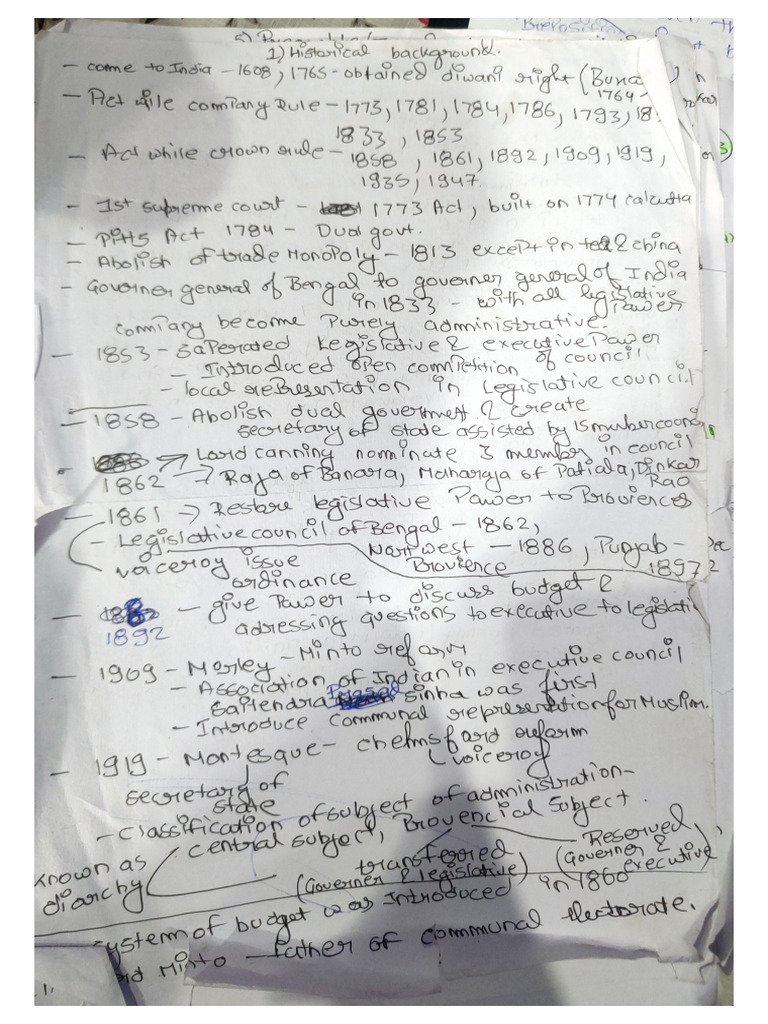 1) Historical background.
- come to India - 1608, 1765 - obtained diwani right (Buxa
1764 -
- Act while company Rule - 1773, 1781, 1784, 1786, 1793, 18
1833, 1853
- Act while crown rule - 1858, 1861, 1892, 1909, 1919,
1935, 1947.
- 1st supreme court - 1773 Act, built on 1774 calcutta
- Pitts Act 1784 - Dual govt.
- Abolish of trade Monopoly - 1813 except in tea & china
- Governer general of Bengal to governer general of India
in 1833 - with all legislative Power
company become purely administrative.
- 1853 - saperated Legislative & executive Power
- Introduced open competition of council
- local representation in Legislative council
- 1858 - Abolish dual government & create
secretary of state assisted by 15 member
- Lord canning nominate 3 member in council
1862 → Raja of Banara, Maharaja of Patiala, Dinkar Rao
- 1861 → Restore legislative Power to Proviences
- Legislative council of Bengal - 1862,
North west Provience - 1886, Punjab - 1897
voiceroy issue ordinance
- 1892 - give Power to discuss budget &
adressing questions to executive to legislati
- 1909 - Morley - Minto reform
- Association of Indian in executive council
Satendra Prasad sinha was first
- Introduce communal representation for Muslim.
- 1919 - Montesque - chelmsford reform
voiceroy
secretary of state
- classification of subject of administration -
central subject, Provencial subject.
Known as diarchy
transferred
(Governer & legislative)
Reserved
(Governer & executive)
ystem of budget was Introduced in 1860
rd Minto - father of communal electorate.